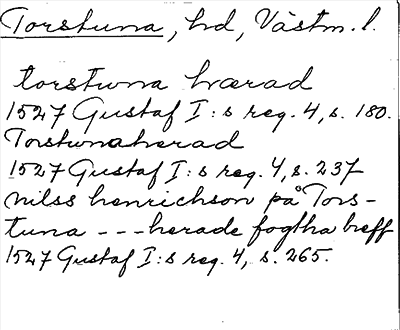 Torstuna, hd, Västm. l.
torstwna hwærad
1527 Gustaf I:s reg. 4, s. 180.
Torstunaherad
1527 Gustaf I:s reg. 4, s. 237
nilss henrichson på Tors-
tuna --- herade fogtha breff
1527 Gustaf I:s reg. 4, s. 265.